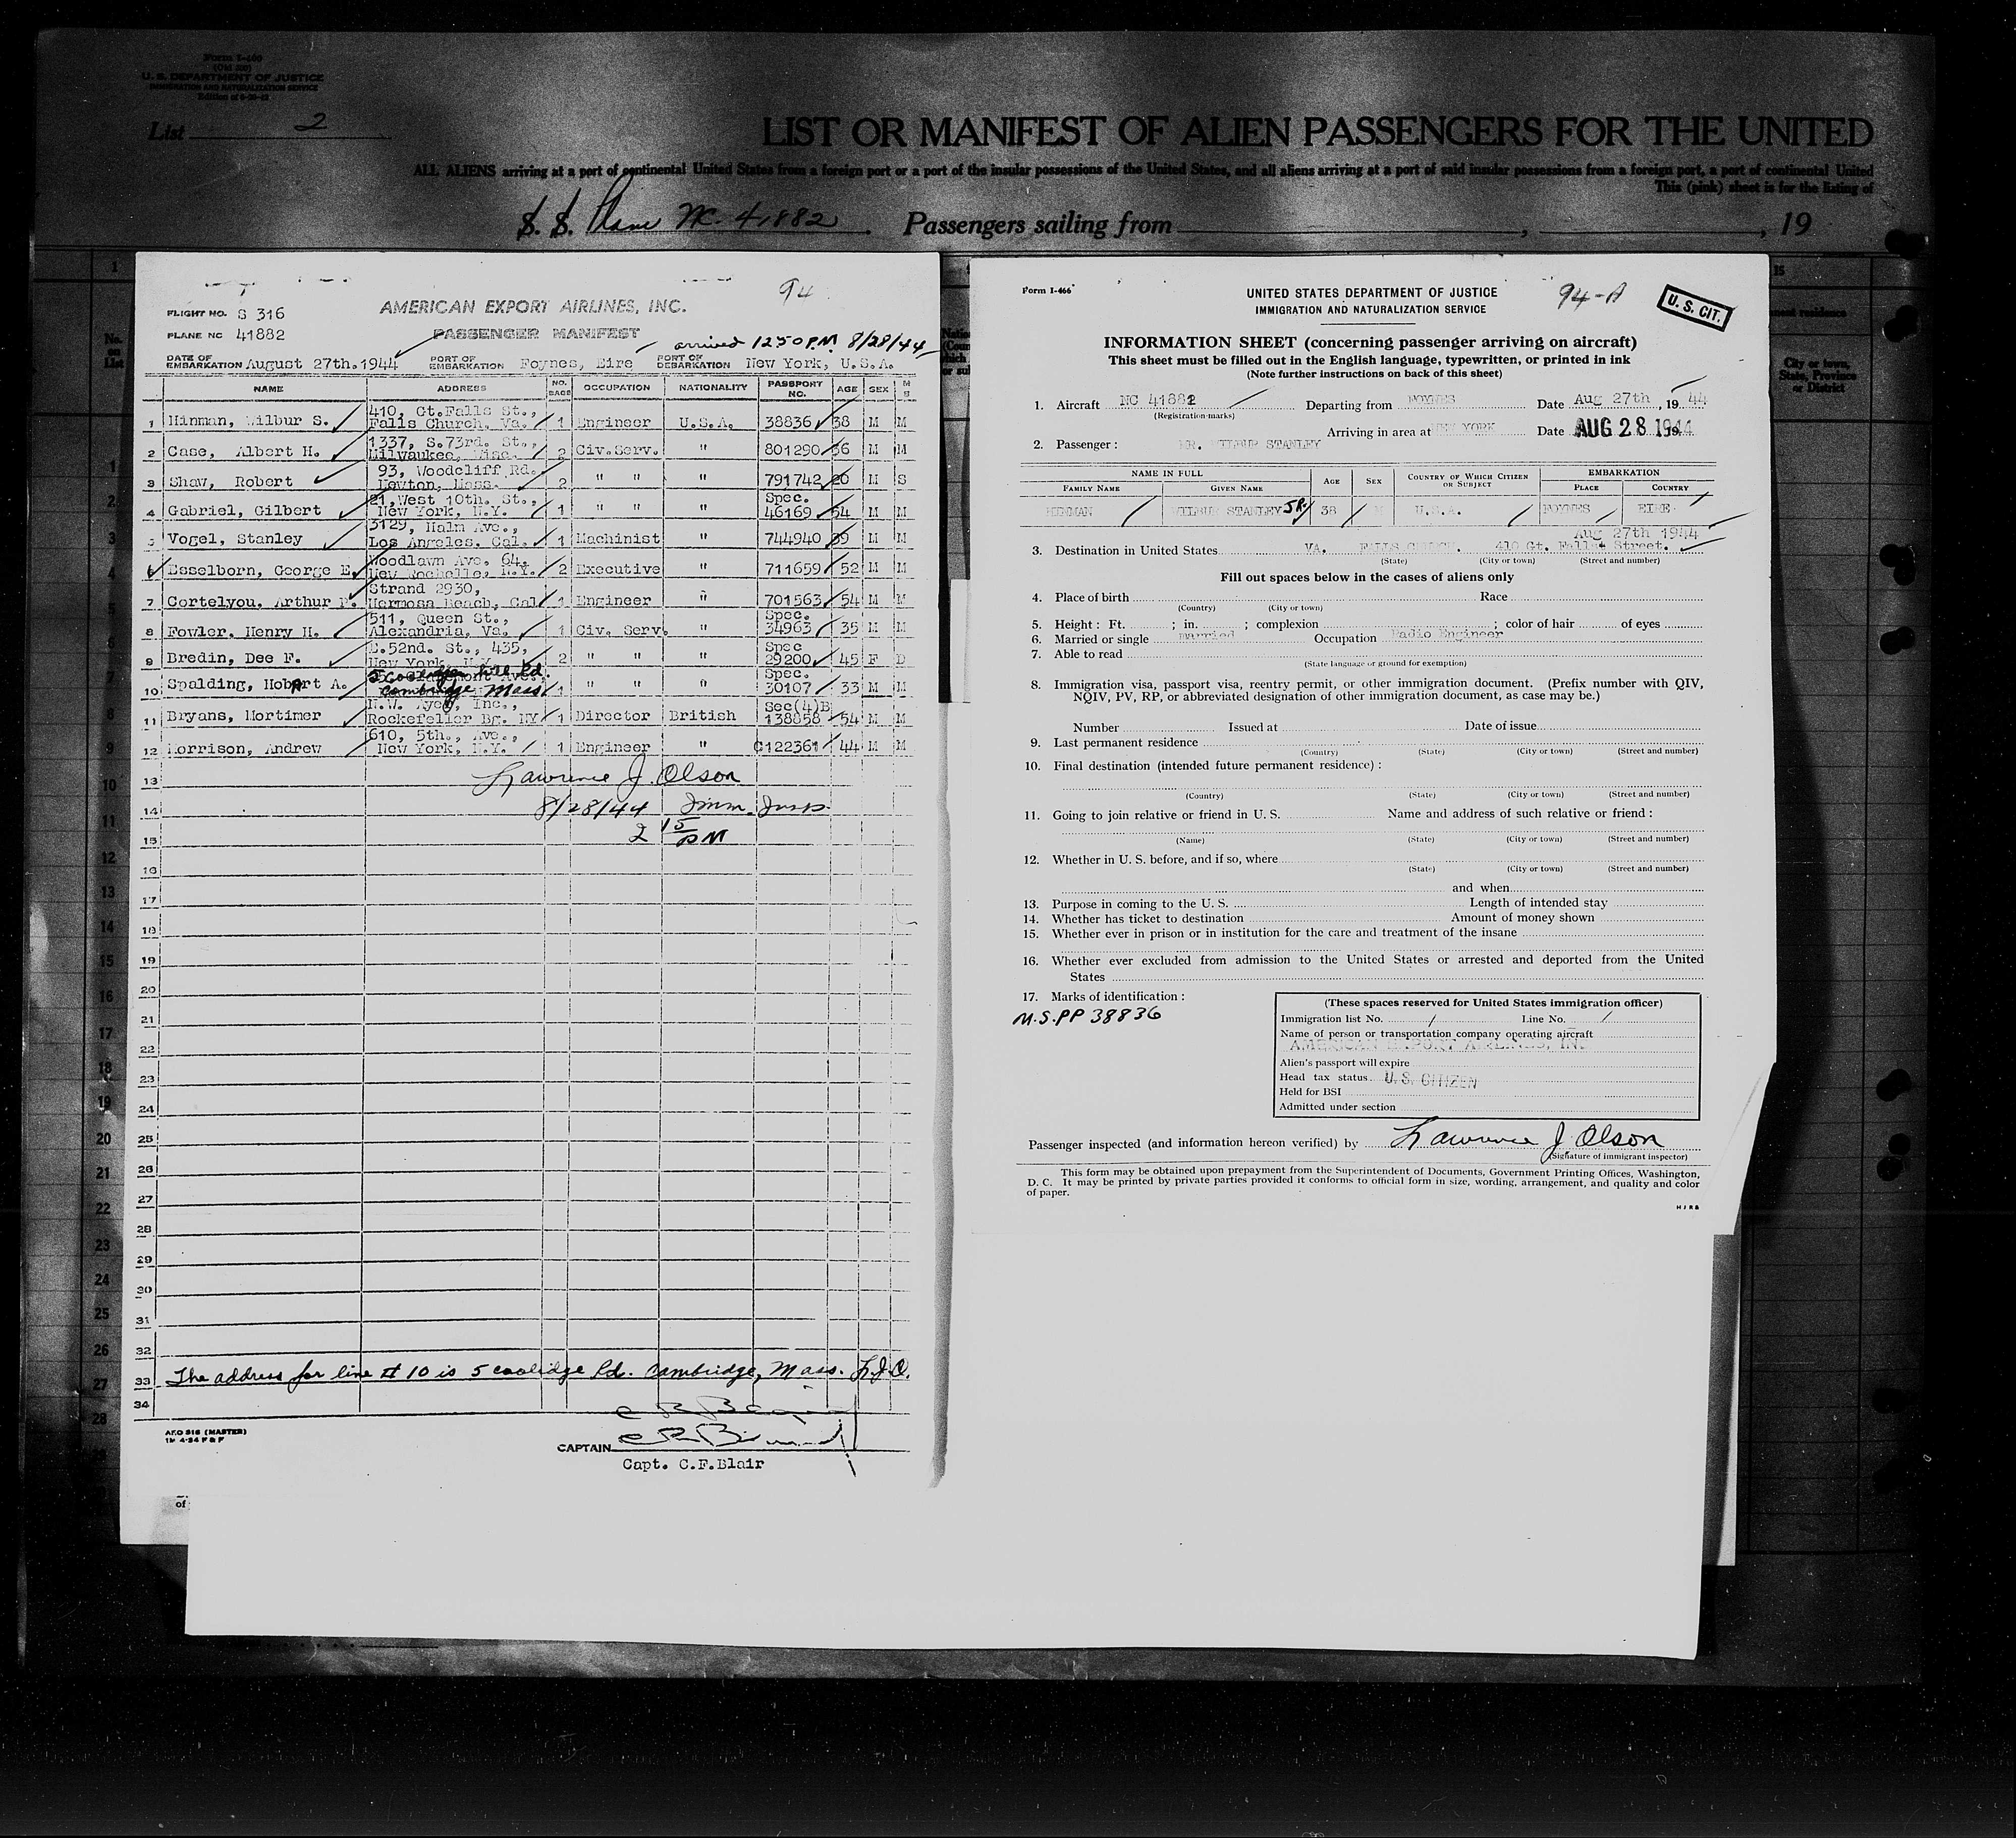 Form I-460
(Old 500)
U. S. DEPARTMENT OF JUSTICE
IMMIGRATION AND NATURALIZATION SERVICE
List 2
LIST OR MANIFEST OF ALIEN PASSENGERS FOR THE UNITED
ALL ALIENS arriving at a port of continental United States from a foreign port or a port of the insular possessions of the United States, and all aliens arriving at a port of said insular possessions from a foreign port, a port of continental United
This (pink) sheet is for the listing of
S. S. Plane NC-41882 Passengers sailing from , , 19
94
FLIGHT NO. S 316 AMERICAN EXPORT AIRLINES, INC.
PLANE NC 41882 PASSENGER MANIFEST
arrived 1250 P.M. 8/28/44
DATE OF EMBARKATION August 27th.1944 PORT OF EMBARKATION Foynes, Eire PORT OF DEBARKATION New York, U.S.A.
NAME ADDRESS NO. BAGS OCCUPATION NATIONALITY PASSPORT NO. AGE SEX M S
1 Hinman, Wilbur S. 410, Gt.Falls St., Falls Church, Va. 1 Engineer U.S.A. 38836 38 M M
2 Case, Albert H. 1337, S.73rd. St., Milwaukee, Wisc. 2 Civ.Serv. " 801290 56 M M
3 Shaw, Robert 93, Woodcliff Rd. Newton, Mass. 2 " " " 791742 20 M S
4 Gabriel, Gilbert 21,West 10th. St., New York, N.Y. 1 " " " Spec. 46169 54 M M
5 Vogel, Stanley 3129, Halm Ave., Los Angeles. Cal. 1 Machinist " 744940 39 M M
6 Esselborn, George E. Woodlawn Ave. 64, New Rochelle, N.Y. 2 Executive " 711659 52 M M
7 Cortelyou, Arthur F. Strand 2930, Hermosa Beach, Cal 1 Engineer " 701563 54 M M
8 Fowler, Henry H. 511, Queen St., Alexandria, Va. 1 Civ. Serv. " Spec. 34963 35 M M
9 Bredin, Dee F. E.52nd. St., 435, New York, N.Y. 2 " " " Spec 29200 45 F D
10 Spalding, Hobart A. 5 Coolidge Hill Rd. Cambridge Mass 1 " " " Spec. 30107 33 M M
11 Bryans, Mortimer N.W. Ayer, Inc., Rockefeller Bg. NY 1 Director British Sec(4)B 138858 54 M M
12 Morrison, Andrew 610, 5th., Ave., New York, N.Y. 1 Engineer " C122361 44 M M
13 Lawrence J. Olson
14 8/28/44 Imm. Insp.
15 2 15 PM
16
17
18
19
20
21
22
23
24
25
26
27
28
29
30
31
32
33 The address for line # 10 is 5 coolidge Rd. Cambridge, Mass. L.J.O.
34
AEO 516 (MASTER)
CAPTAIN
Capt. C.F.Blair
Form I-466
UNITED STATES DEPARTMENT OF JUSTICE
IMMIGRATION AND NATURALIZATION SERVICE
94-A
U. S. CIT.
INFORMATION SHEET (concerning passenger arriving on aircraft)
This sheet must be filled out in the English language, typewritten, or printed in ink
(Note further instructions on back of this sheet)
1. Aircraft NC 41882 Departing from FOYNES Date Aug 27th , 19 44
(Registration marks)
Arriving in area at NEW YORK Date AUG 28 1944
2. Passenger : MR. WILBUR STANLEY
NAME IN FULL AGE SEX COUNTRY OF WHICH CITIZEN OR SUBJECT EMBARKATION
FAMILY NAME GIVEN NAME PLACE COUNTRY
HINMAN WILBUR STANLEY JR. 38 M U.S.A. FOYNES EIRE
Aug 27th 1944
3. Destination in United States VA. FALLS CHURCH. 410 Gt. Falls Street.
(State) (City or town) (Street and number)
Fill out spaces below in the cases of aliens only
4. Place of birth Race
(Country) (City or town)
5. Height : Ft. ; in. ; complexion ; color of hair of eyes
6. Married or single married Occupation Radio Engineer
7. Able to read
(State language or ground for exemption)
8. Immigration visa, passport visa, reentry permit, or other immigration document. (Prefix number with QIV,
NQIV, PV, RP, or abbreviated designation of other immigration document, as case may be.)
Number Issued at Date of issue
9. Last permanent residence
(Country) (State) (City or town) (Street and number)
10. Final destination (intended future permanent residence) :
(Country) (State) (City or town) (Street and number)
11. Going to join relative or friend in U. S. Name and address of such relative or friend :
(Name) (State) (City or town) (Street and number)
12. Whether in U. S. before, and if so, where
(State) (City or town) (Street and number)
and when
13. Purpose in coming to the U. S. Length of intended stay
14. Whether has ticket to destination Amount of money shown
15. Whether ever in prison or in institution for the care and treatment of the insane
16. Whether ever excluded from admission to the United States or arrested and deported from the United
States
17. Marks of identification :
M.S.PP 38836
(These spaces reserved for United States immigration officer)
Immigration list No. 1 Line No. 1
Name of person or transportation company operating aircraft
AMERICAN EXPORT AIRLINES, INC
Alien's passport will expire
Head tax status U. S. CITIZEN
Held for BSI
Admitted under section
Passenger inspected (and information hereon verified) by Lawrence J. Olson
(Signature of immigrant inspector)
This form may be obtained upon prepayment from the Superintendent of Documents, Government Printing Offices, Washington,
D. C. It may be printed by private parties provided it conforms to official form in size, wording, arrangement, and quality and color
of paper.